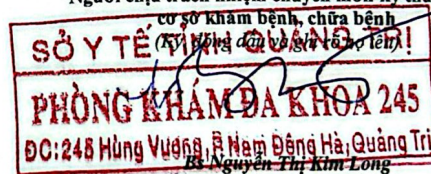 Người chịu trách nhiệm chuyên môn kỹ thuật
cơ sở khám bệnh, chữa bệnh
(Ký, đóng dấu và ghi rõ họ tên)
SỞ Y TẾ TỈNH QUẢNG TRỊ
PHÒNG KHÁM ĐA KHOA 245
ĐC:245 Hùng Vương, P Nam Đông Hà, Quảng Trị
Bs Nguyễn Thị Kim Long